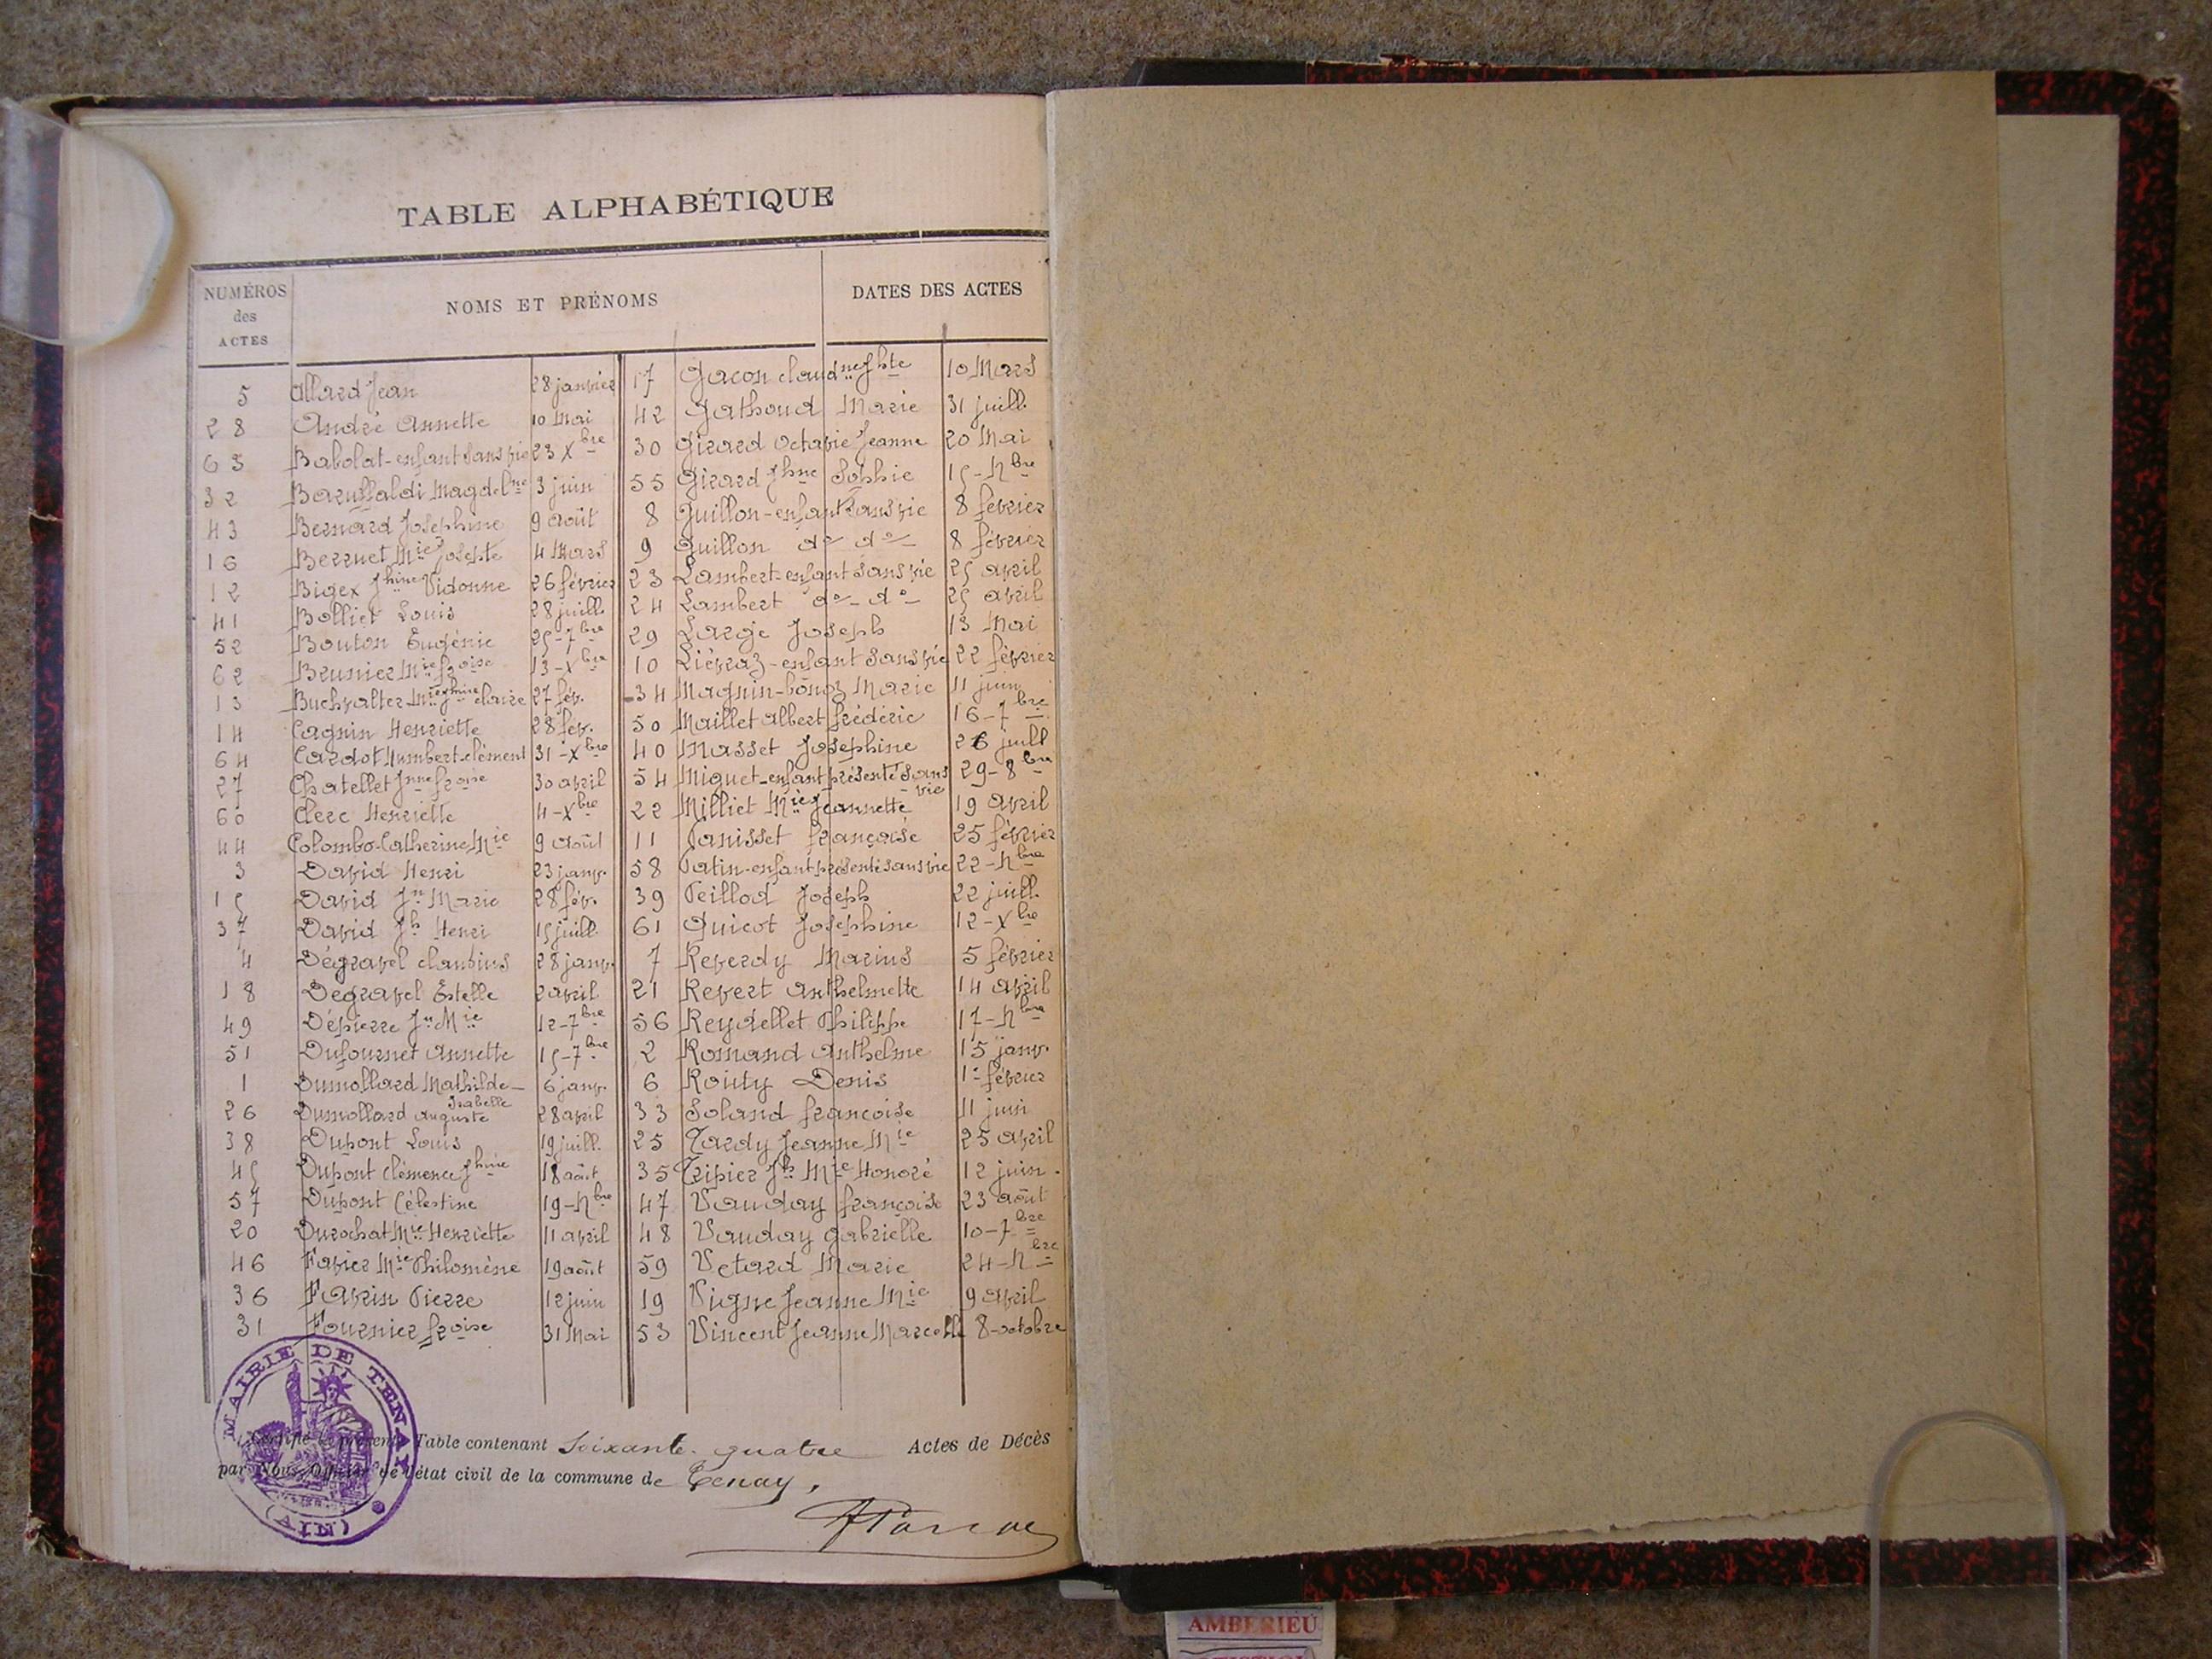 TABLE ALPHABÉTIQUE
NUMÉROS des ACTES
NOMS ET PRÉNOMS
DATES DES ACTES
5 Allard Jean 28 janvier
28 André Annette 10 Mai
63 Babolat-enfant sans vie 23 Xbre
32 Baruffaldi Magdelne 3 juin
43 Bernard Josephine 9 août
16 Berruet Mie Josepte 4 Mars
12 Bigex Jhine Vidonne 26 février
41 Bolliet Louis 28 juill.
52 Bouton Eugénie 25-7bre
62 Brunier Mie froise 13-Xbre
13 Buchvalter Mie Jhine claire 27 fév.
14 Cagnin Henriette 28 fév.
64 Cardot Humbert-clément 31-Xbre
27 Chatellet Jnne froise 30 avril
60 Clerc Henriette 4-Xbre
44 Colombo-Catherine Mie 9 août
3 David Henri 23 janv.
15 David Jn Marie 28 fév.
37 David Jh Henri 15 juill.
4 Dégravel claudius 28 janv.
18 Degravel Estelle 2 avril
49 Dépierre Jn Mie 12-7bre
51 Dufournet Annette 15-7bre
1 Dumollard Mathilde- Isabelle 6 janv.
26 Dumollard Auguste 28 avril
38 Dupont Louis 19 juill.
45 Dupont Clémence Jhine 18 août
57 Dupont Célestine 19-Nbre
20 Durochat Mie Henriette 11 avril
46 Favier Mie Philomène 19 août
36 Favrin Pierre 12 juin
31 Fournier froise 31 Mai
17 Gacon claudne Jhte 10 Mars
42 Gathoud Marie 31 juill.
30 Girard Octavie Jeanne 20 Mai
55 Girard Jhne Sophie 15-Nbre
8 Guillon-enfant sans vie 8 février
9 Guillon do do 8 février
23 Lambert-enfant sans vie 25 avril
24 Lambert do- do- 25 avril
29 Large Joseph 13 Mai
10 Liévraz-enfant sans vie 22 février
34 Magnin-bonoz Marie 11 juin
50 Maillet Albert frédéric 16-7bre
40 Masset Josephine 26 juill
54 Miguet-enfant présenté sans vie 29-8bre
22 Milliet Mie Jeannette 19 avril
11 Panisset françoise 25 février
58 Patin-enfant présenté sans vie 22-Nbre
39 Peillod Joseph 22 juill.
61 Quicot Josephine 12-Xbre
7 Reverdy Marius 5 février
21 Revert Anthelmette 14 avril
56 Reydellet Philippe 17-Nbre
2 Romand Anthelme 15 janv.
6 Routy Denis 1er février
33 Soland francoise 11 juin
25 Tardy Jeanne Mie 25 avril
35 Tripier Jh Mie Honoré 12 juin.
47 Vauday françoise 23 août
48 Vauday Gabrielle 10-7bre
59 Vetard Marie 24-Nbre
19 Vigne Jeanne Mie 9 avril
53 Vincent Jeanne Marcelle 8-octobre
MAIRIE DE TENAY
(AIN)
Certifié la présente Table contenant Soixante-quatre Actes de Décès
par Nous, Officier de l'état civil de la commune de Tenay,
AMBERIEU